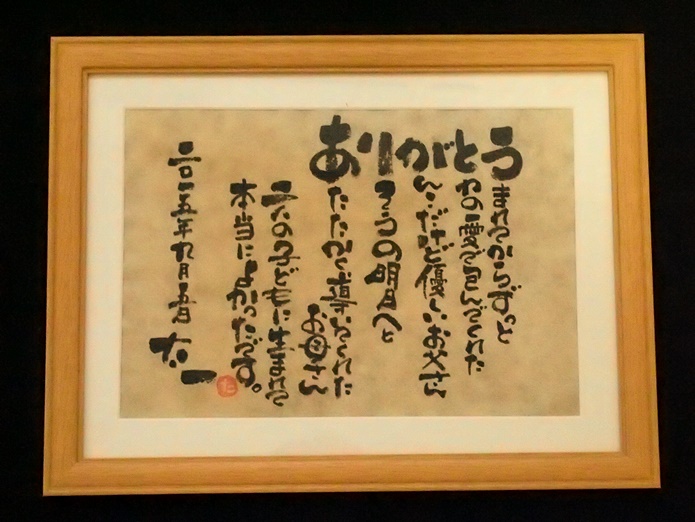 ありがとう
まれてからずっと
わの愛で包んでくれた
んこだけど優しいお父さん
そうの明日へと
たたかく導いてくれた
お母さん
二人の子どもに生まれて
本当によかったです。
二〇一五年九月五日